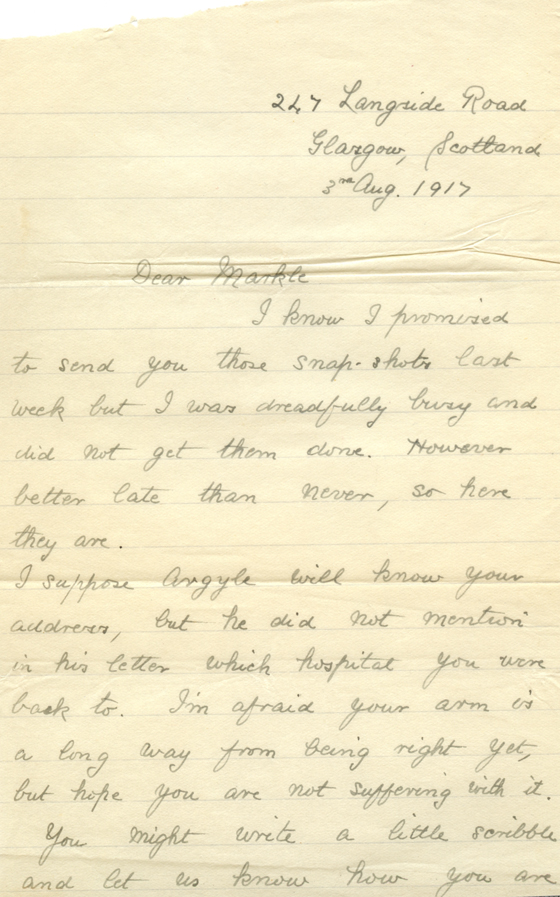 247 Langside Road
Glasgow, Scotland
3rd Aug. 1917
Dear Markle
I know I promised
to send you those snap-shots last
week but I was dreadfully busy and
did not get them done. However
better late than never, so here
they are.
I suppose Argyle will know your
address, but he did not mention
in his letter which hospital you were
back to. I'm afraid your arm is
a long way from being right yet,
but hope you are not suffering with it.
You might write a little scribble
and let us know how you are